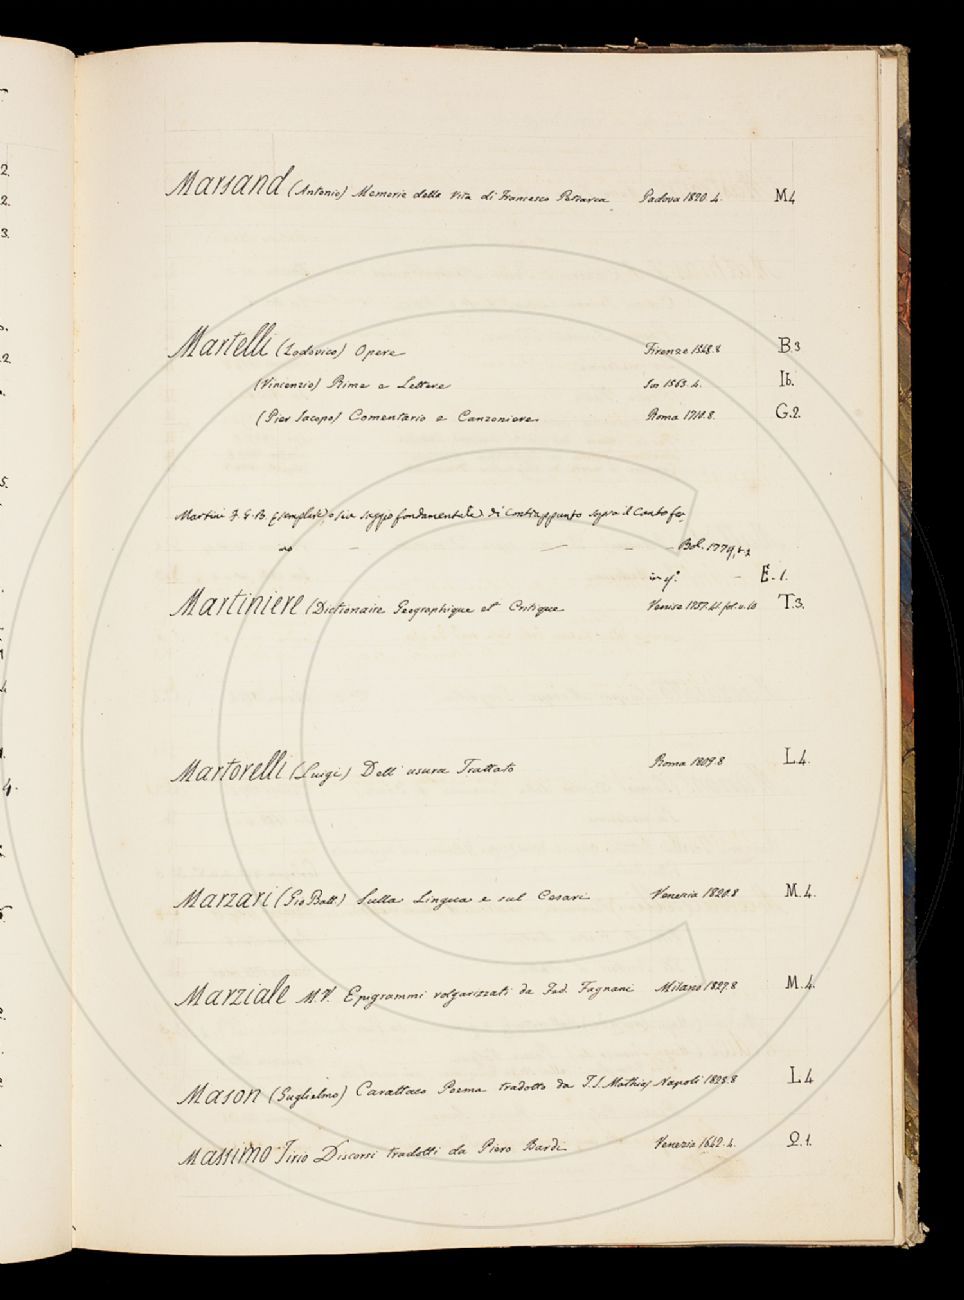 Marsand (Antonio) Memorie della Vita di Francesco Petrarca Padova 1820. 4. M4
Martelli (Lodovico) Opere Firenze 1548. 8 B.3
(Vincenzio) Rime e Lettere 1563. 4. Ib.
(Pier Jacopo) Comentario e Canzoniere. Roma 1710. 8. G.2.
Martini F. G. B. Esemplare o sia saggio fondamentale di Contrappunto sopra il Canto fer
mo — — — Bol. 1774,
in f. — E. 1.
Martiniere (Dictionaire Geographique et Critique Venise 1737. 41. fol. v. 10 T.3.
Martorelli (Luigi) Dell' usura Trattato Roma 1809. 8 L.4.
Marzari (Gio Batt) Sulla Lingua e sul Cesari Venezia 1820. 8 M.4.
Marziale M. V. Epigrammi volgarizzati da Fed. Fagnani Milano 1827. 8 M.4.
Mason (Guglielmo) Carattaco Poema tradotto da T. J. Mathias Napoli 1823. 8 L4
Massimo Tirio Discorsi tradotti da Piero Bardi Venezia 1642. 4. Q.1.